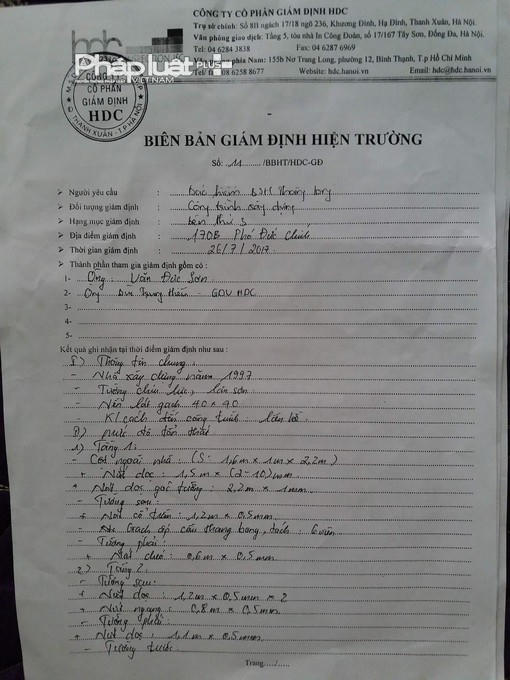 CÔNG TY CỔ PHẦN GIÁM ĐỊNH HDC
Trụ sở chính: Số 8II ngách 17/18 ngõ 236, Khương Đình, Hạ Đình, Thanh Xuân, Hà Nội.
Văn phòng giao dịch: Tầng 5, tòa nhà In Công Đoàn, số 17/167 Tây Sơn, Đống Đa, Hà Nội.
Tel: 04 6284 3838 Fax: 04 6287 6969
phía Nam: 155b Nơ Trang Long, phường 12, Bình Thạnh, T.p Hồ Chí Minh
08 6258 8677 Website: hdc.hanoi.vn Email: hdc@hdc.hanoi.vn
hdc
Pháp luật PLUS
VIỆT NAM
CÔNG TY
CỔ PHẦN
GIÁM ĐỊNH
HDC
THANH XUÂN - T.P HÀ NỘI
BIÊN BẢN GIÁM ĐỊNH HIỆN TRƯỜNG
Số: 11 /BBHT/HDC-GĐ
Người yêu cầu : Bảo hiểm BSH Thăng long
Đối tượng giám định : Công trình xây dựng
Hạng mục giám định : bên thứ 3
Địa điểm giám định : 170B Phó Đức Chính
Thời gian giám định : 26/7/2017
Thành phần tham gia giám định gồm có :
1- Ông: Văn Đức Sơn
2- Ông Trung - GĐV HDC
3-
4-
5-
Kết quả ghi nhận tại thời điểm giám định như sau :
I) Thông tin chung:
- Nhà xây dựng năm 1997
- Tường chịu lực, lăn sơn
- Nền lát gạch 40 x 40
- K/cách đến công trình: liền kề
II) mức độ tổn thất
1) Tầng 1:
- Cột ngoài nhà: (S: 1,6m x 1m x 2,2m)
+ Nứt dọc: 1,5m x (2-10)mm
+ Nứt dọc góc tường: 2,2m x 1mm
- Tường sau:
+ Nứt cổ trần: 1,2m x 0,5mm
- Gạch ốp cầu thang bong, tách: 6 viên
- Tường phải:
+ Nứt chéo: 0,6m x 0,5mm
2) Tầng 2:
- Tường sau:
+ Nứt dọc: 1,2m x 0,5mm x 2
+ Nứt ngang: 0,8m x 0,5mm
- Tường phải:
+ Nứt dọc: 1,1m x 0,5mm
- Tường trước:
Trang...../.....